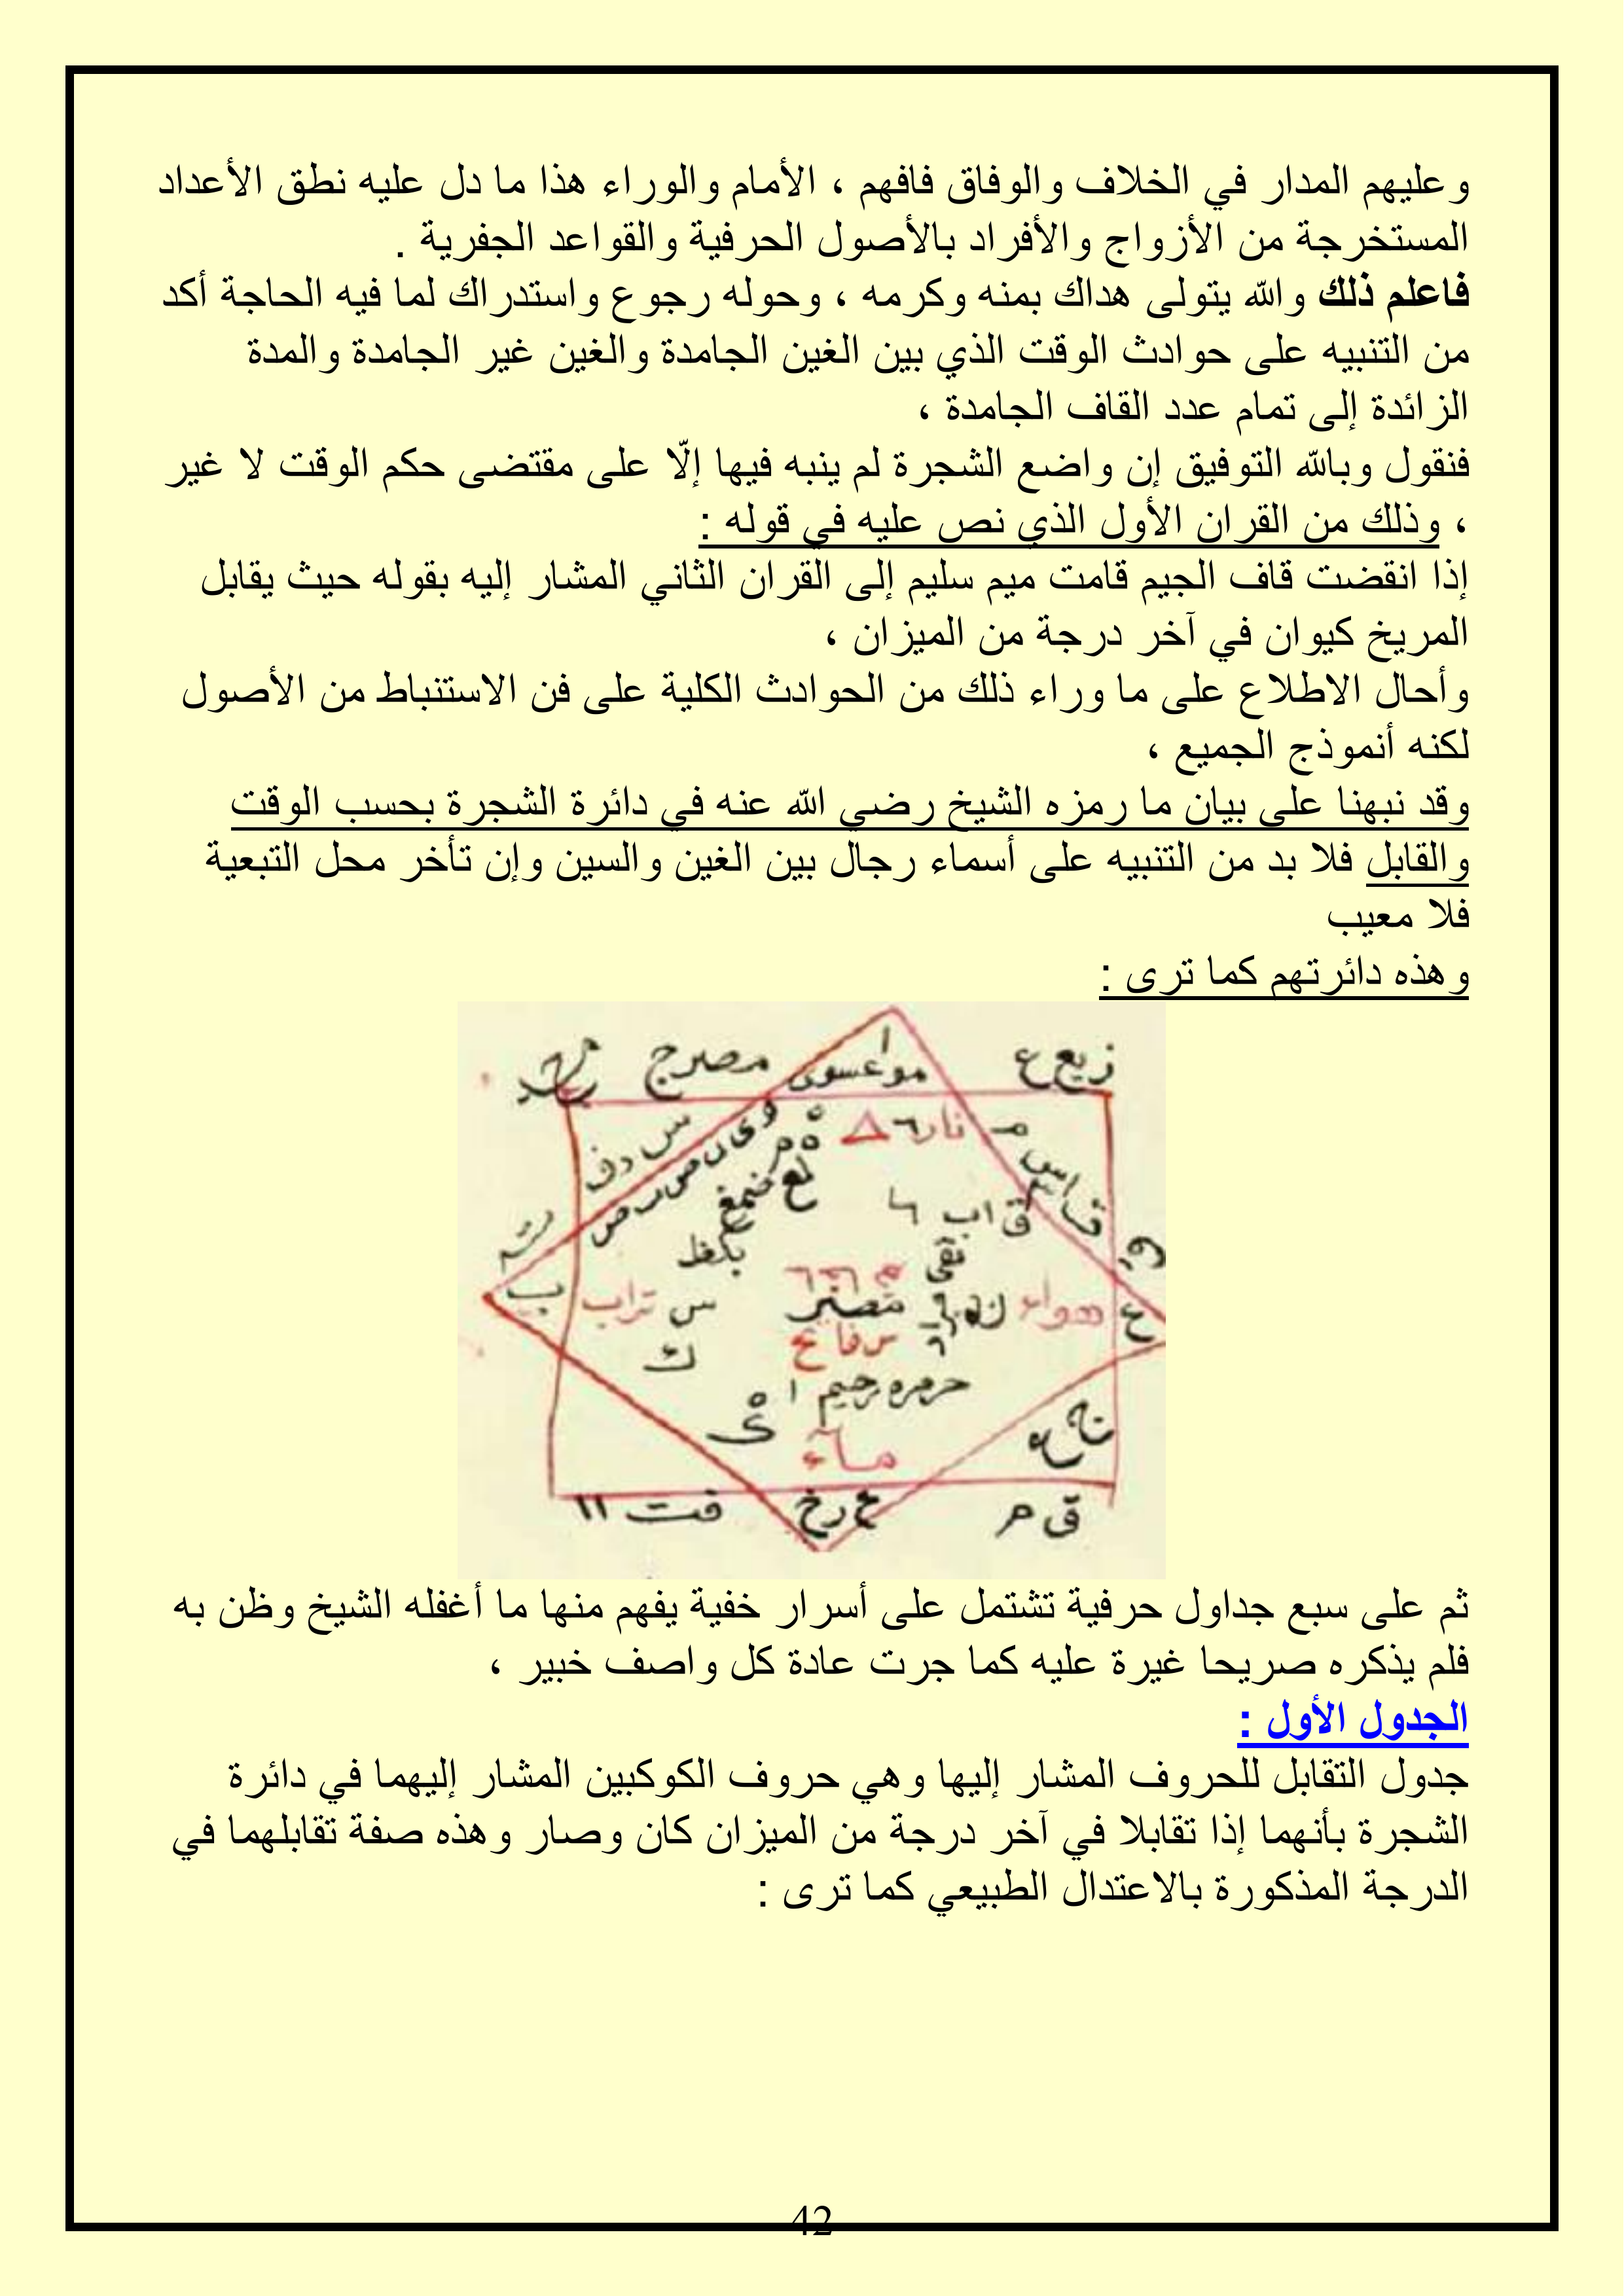 وعليهم المدار في الخلاف والوفاق فافهم ، الأمام والوراء هذا ما دل عليه نطق الأعداد
المستخرجة من الأزواج والأفراد بالأصول الحرفية والقواعد الجفرية .
فاعلم ذلك والله يتولى هداك بمنه وكرمه ، وحوله رجوع واستدراك لما فيه الحاجة أكد
من التنبيه على حوادث الوقت الذي بين الغين الجامدة والغين غير الجامدة والمدة
الزائدة إلى تمام عدد القاف الجامدة ،
فنقول وبالله التوفيق إن واضع الشجرة لم ينبه فيها إلّا على مقتضى حكم الوقت لا غير
، وذلك من القران الأول الذي نص عليه في قوله :
إذا انقضت قاف الجيم قامت ميم سليم إلى القران الثاني المشار إليه بقوله حيث يقابل
المريخ كيوان في آخر درجة من الميزان ،
وأحال الاطلاع على ما وراء ذلك من الحوادث الكلية على فن الاستنباط من الأصول
لكنه أنموذج الجميع ،
وقد نبهنا على بيان ما رمزه الشيخ رضي الله عنه في دائرة الشجرة بحسب الوقت
والقابل فلا بد من التنبيه على أسماء رجال بين الغين والسين وإن تأخر محل التبعية
فلا معيب
وهذه دائرتهم كما ترى :
زيع ع
مصرج
نار
ق اب
هواء
تراب
س
ك
ماء
ق م
ع رخ
فت ١١
ثم على سبع جداول حرفية تشتمل على أسرار خفية يفهم منها ما أغفله الشيخ وظن به
فلم يذكره صريحا غيرة عليه كما جرت عادة كل واصف خبير ،
الجدول الأول :
جدول التقابل للحروف المشار إليها وهي حروف الكوكبين المشار إليهما في دائرة
الشجرة بأنهما إذا تقابلا في آخر درجة من الميزان كان وصار وهذه صفة تقابلهما في
الدرجة المذكورة بالاعتدال الطبيعي كما ترى :
42